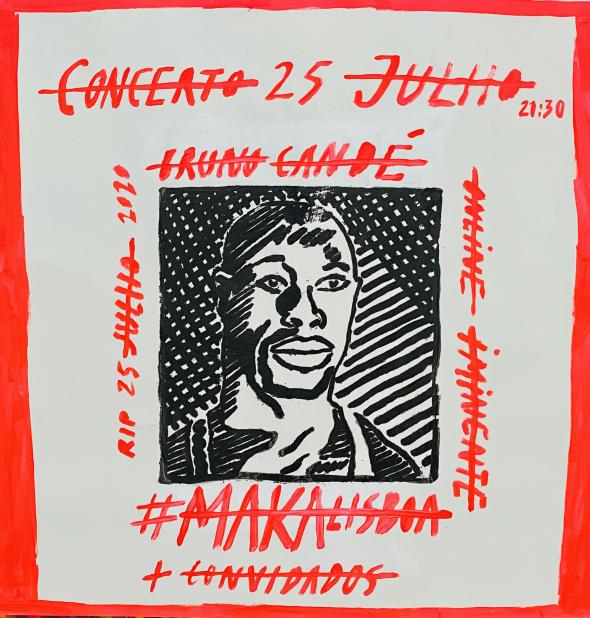 CONCERTO 25 JULHO
21:30
BRUNO CANDÉ
RIP 25 JULHO 2020
ONLINE IMINENTE
#MAKALISBOA
+ CONVIDADOS